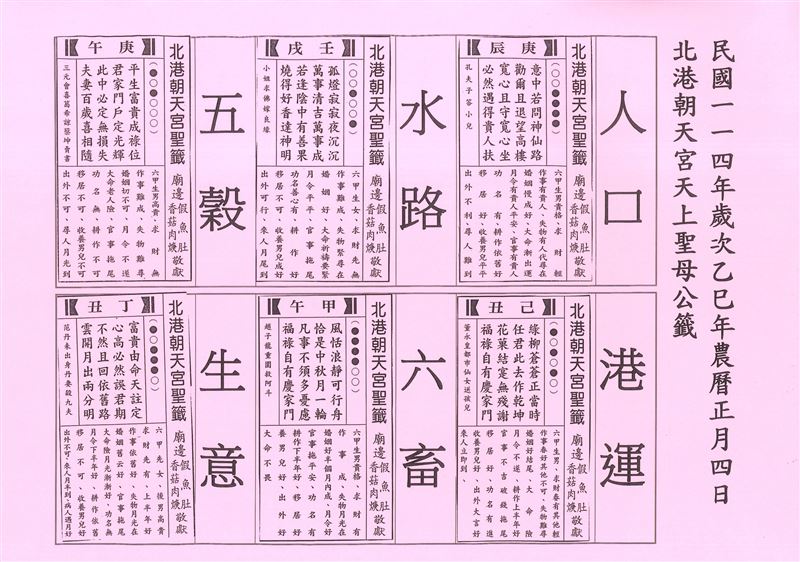 民國一一四年歲次乙巳年農曆正月四日
北港朝天宮天上聖母公籤
人口
北港朝天宮聖籤
廟邊假魚肚
香菇肉焿敬獻
庚辰
意中若問神仙路
勸爾且退望高樓
寬心且守寬心坐
必然遇得貴人扶
孔夫子答小兒
六甲生男貴格、求財輕
作事有貴人、失物有人代尋在
婚姻慢成好、大命漸出運
月令有貴人平安、官事有貴人
功名有、耕作依舊好
移居好、收養兒女平平
出外不利、尋人難到
水路
北港朝天宮聖籤
廟邊假魚肚
香菇肉焿敬獻
壬戌
孤燈寂寂夜沉沉
萬事清吉萬事成
若逢陰中有善果
燒得好香達神明
小姐求佛嫁良緣
六甲生女、求財先無
作事難成、失物緊尋在
婚姻好、大命祈禱要緊
月令平平、官事拖尾
功名善心有、耕作好
移居不可、收養男兒成好
出外可行、來人月尾到
五穀
北港朝天宮聖籤
廟邊假魚肚
香菇肉焿敬獻
庚午
平生富貴成祿位
君家門戶定光輝
此中必定無損失
夫妻百歲喜相隨
三元會喜葛希諒蔡坤賣書
六甲生男高貴、求財無
作事難成、失物難尋
婚姻切不可、月令不遂
大命老人險、官事拖尾
功名無、耕作不可
移居不可、收養男兒好
出外不可、尋人月光到
港運
北港朝天宮聖籤
廟邊假魚肚
香菇肉焿敬獻
己丑
綠柳蒼蒼正當時
任君此去作乾坤
花菓結寔無殘謝
福祿自有慶家門
董永皇都市仙女送孩兒
六甲生男、求財春有其他輕
作事春好其他不可、失物難尋
婚姻好結尾、大命險
月令不遂、耕作上半年好
官事不吉破錢拖尾
移居好、功名有進
收養男兒好、出外大吉好
來人立即到、
六畜
北港朝天宮聖籤
廟邊假魚肚
香菇肉焿敬獻
甲午
風恬浪靜可行舟
恰是中秋月一輪
凡事不須多憂慮
福祿自有慶家門
趙子龍重圍救阿斗
六甲生男貴格、求財有
作事成、失物月光在
婚姻好半個月內成、月令好
官事拖平安、功名有
耕作下半年好、移居好
養男兒好、出外好
大命不畏
生意
北港朝天宮聖籤
廟邊假魚肚
香菇肉焿敬獻
丁丑
富貴由命天註定
心高必然誤君期
不然且回依舊路
雲開月出兩分明
范丹未出身丹妻殺九夫
六甲先女、後男高貴
求財先有、上半年好
作事依舊好、失物月光在
婚姻舊云好、官事拖尾
大命險月光漸漸好、功名無
月令下半年好、耕作依舊
移居不可、收養男兒好
出外不可、來人月半到、病人過月好